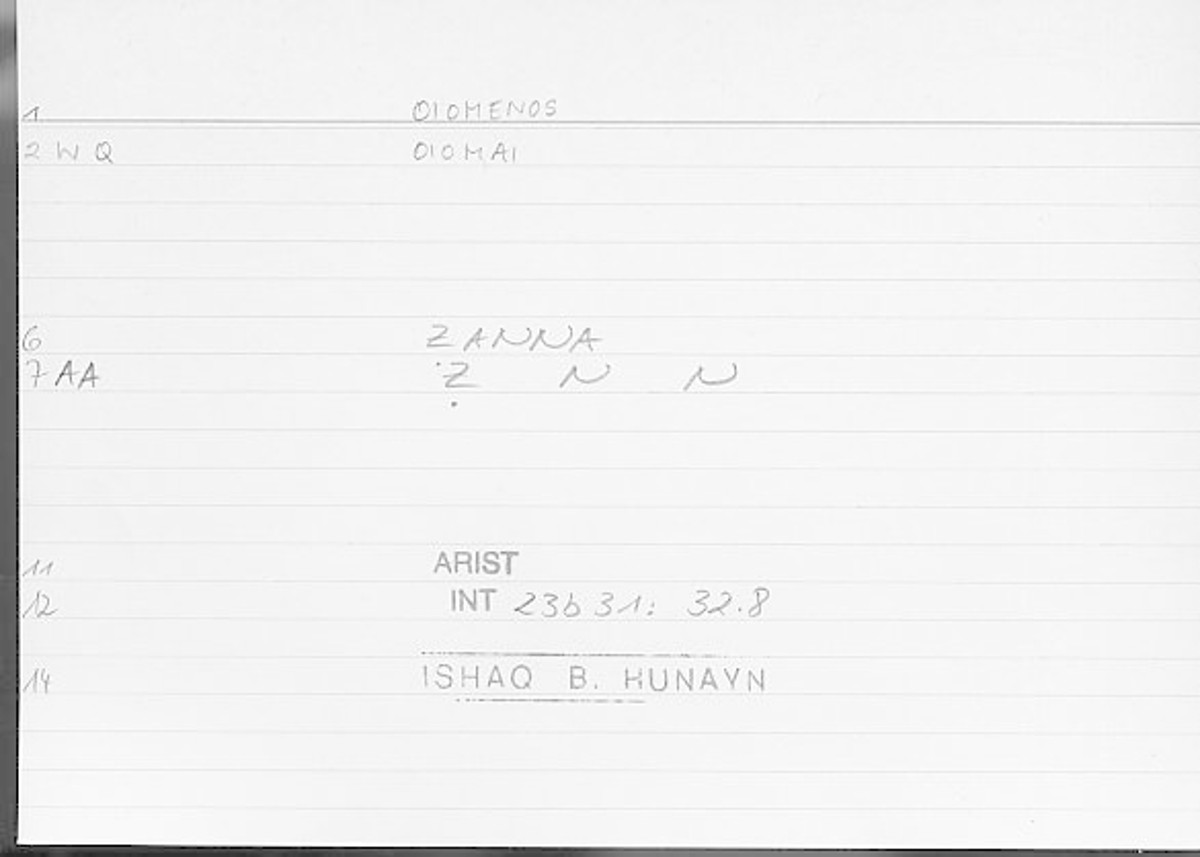 1 OIOMENOS
2 W Q OIOMAI
6 ZANNA
7 AA Ẓ N N
11 ARIST
12 INT 23b31: 32.8
14 ISHAQ B. HUNAYN